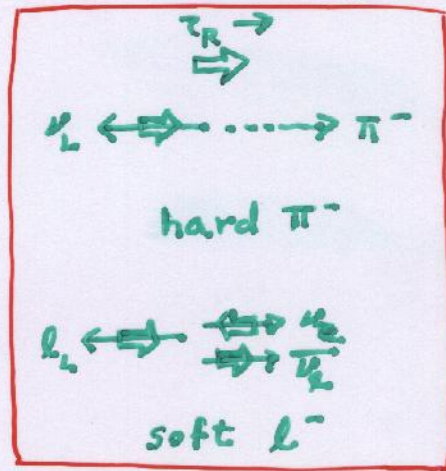 τ_R →
ν_L π⁻
hard π⁻
ℓ_L ν_ℓ
ν̄_ℓ
soft ℓ⁻